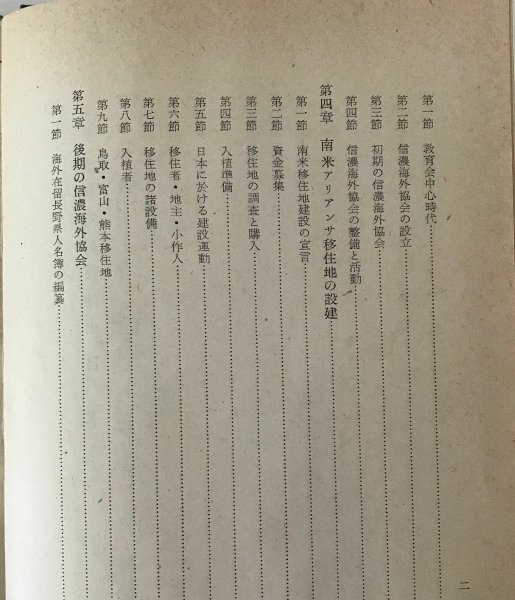 第一節 教育会中心時代
第二節 信濃海外協会の設立
第三節 初期の信濃海外協会
第四節 信濃海外協会の整備と活動
第四章 南米アリアンサ移住地の設建
第一節 南米移住地建設の宣言
第二節 資金募集
第三節 移住地の調査と購入
第四節 入植準備
第五節 日本に於ける建設運動
第六節 移住者・地主・小作人
第七節 移住地の諸設備
第八節 入植者
第九節 鳥取・富山・熊本移住地
第五章 後期の信濃海外協会
第一節 海外在留長野県人名簿の編纂
二